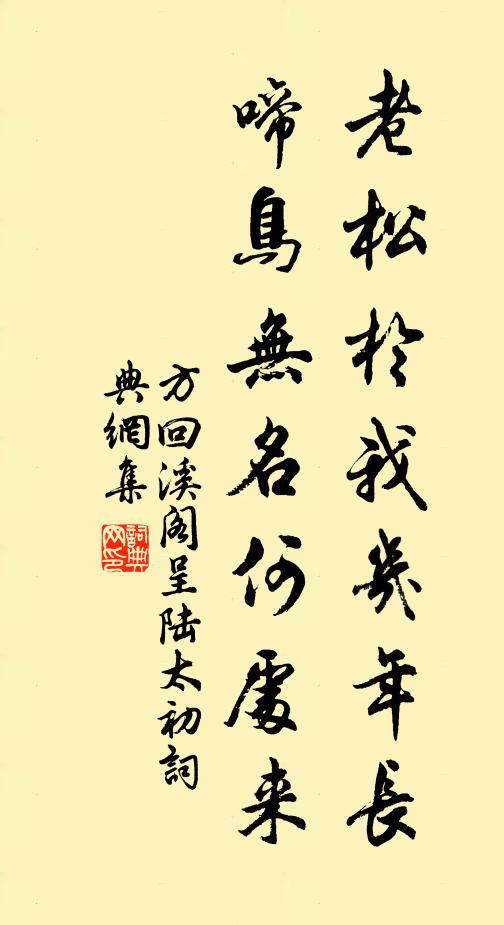 老松於我幾年長
啼鳥無名何處来
方回溪阁呈陆太初詞
典網集
詞典
网印